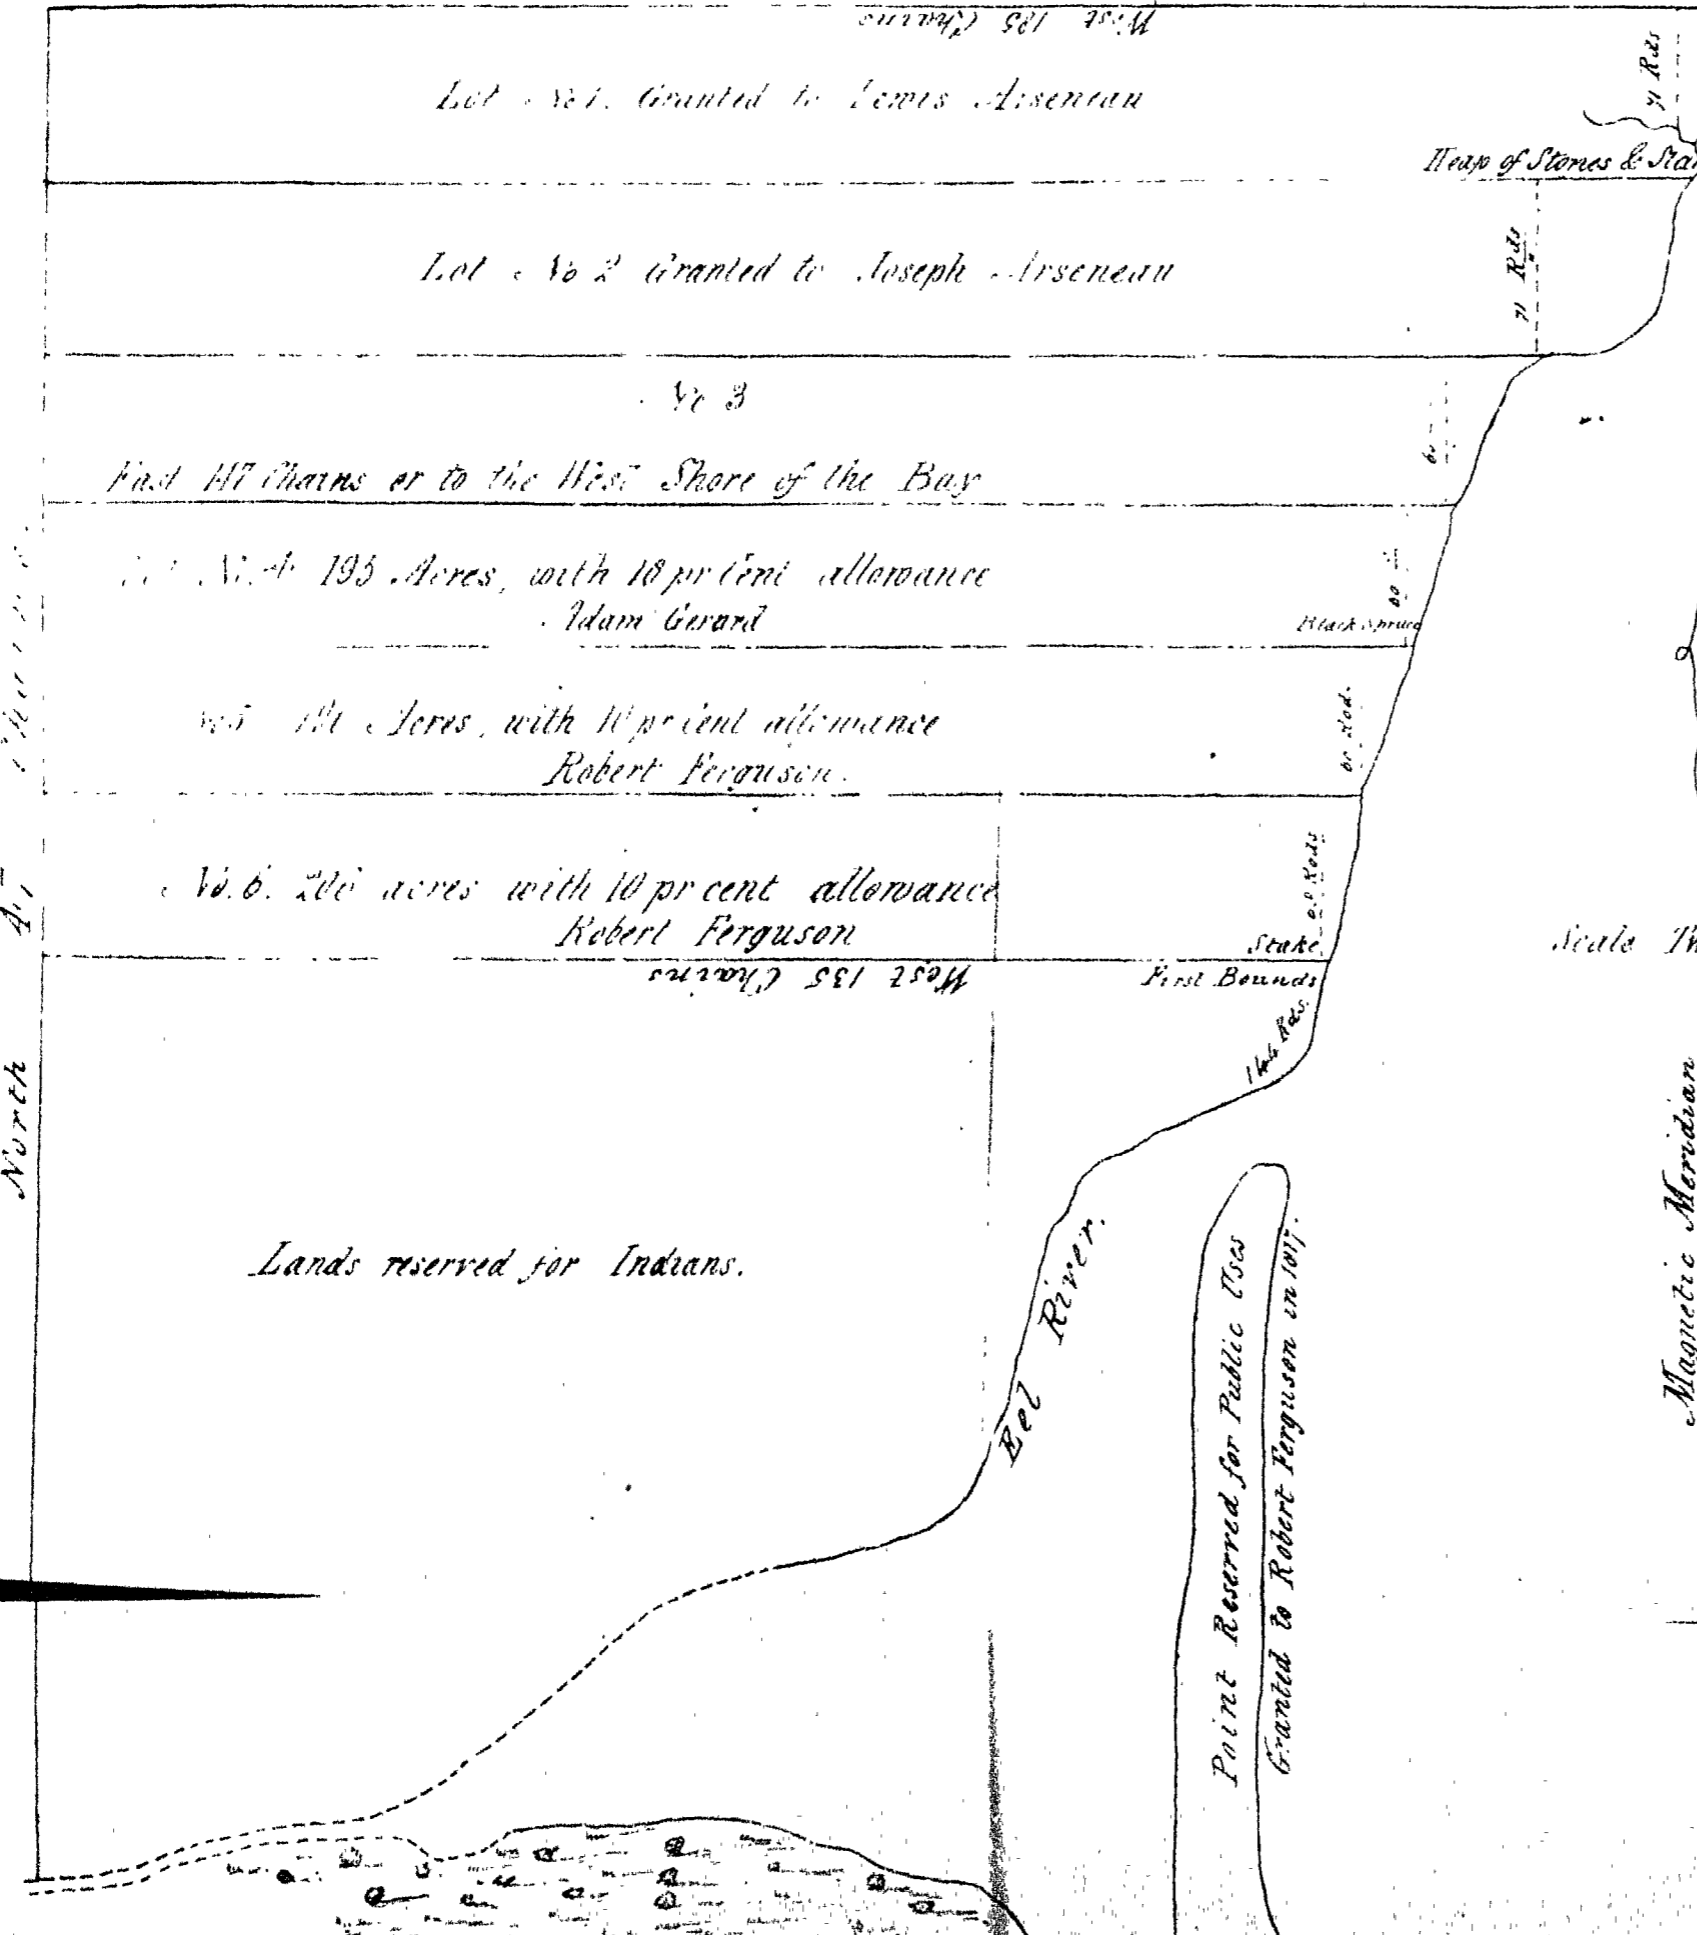 West 125 Chains
Lot No 1. Granted to Lewis Arseneau
71 Rds
Heap of Stones &
Lot No 2 Granted to Joseph Arseneau
71 Rds
No 3
East 147 Chains or to the West Shore of the Bay
195 Acres, with 10 pr Cent allowance
Adam Gerard
Black Spruce
Acres, with 10 pr Cent allowance
Robert Ferguson.
Rod.
No. 6. acres with 10 pr cent allowance
Robert Ferguson
Rods
Stake
West 135 Chains
First Bounds
Rds.
North 47
Scale
Magnetic Meridian
Lands reserved for Indians.
Eel River.
Point Reserved for Public Uses
Granted to Robert Ferguson in 1817.